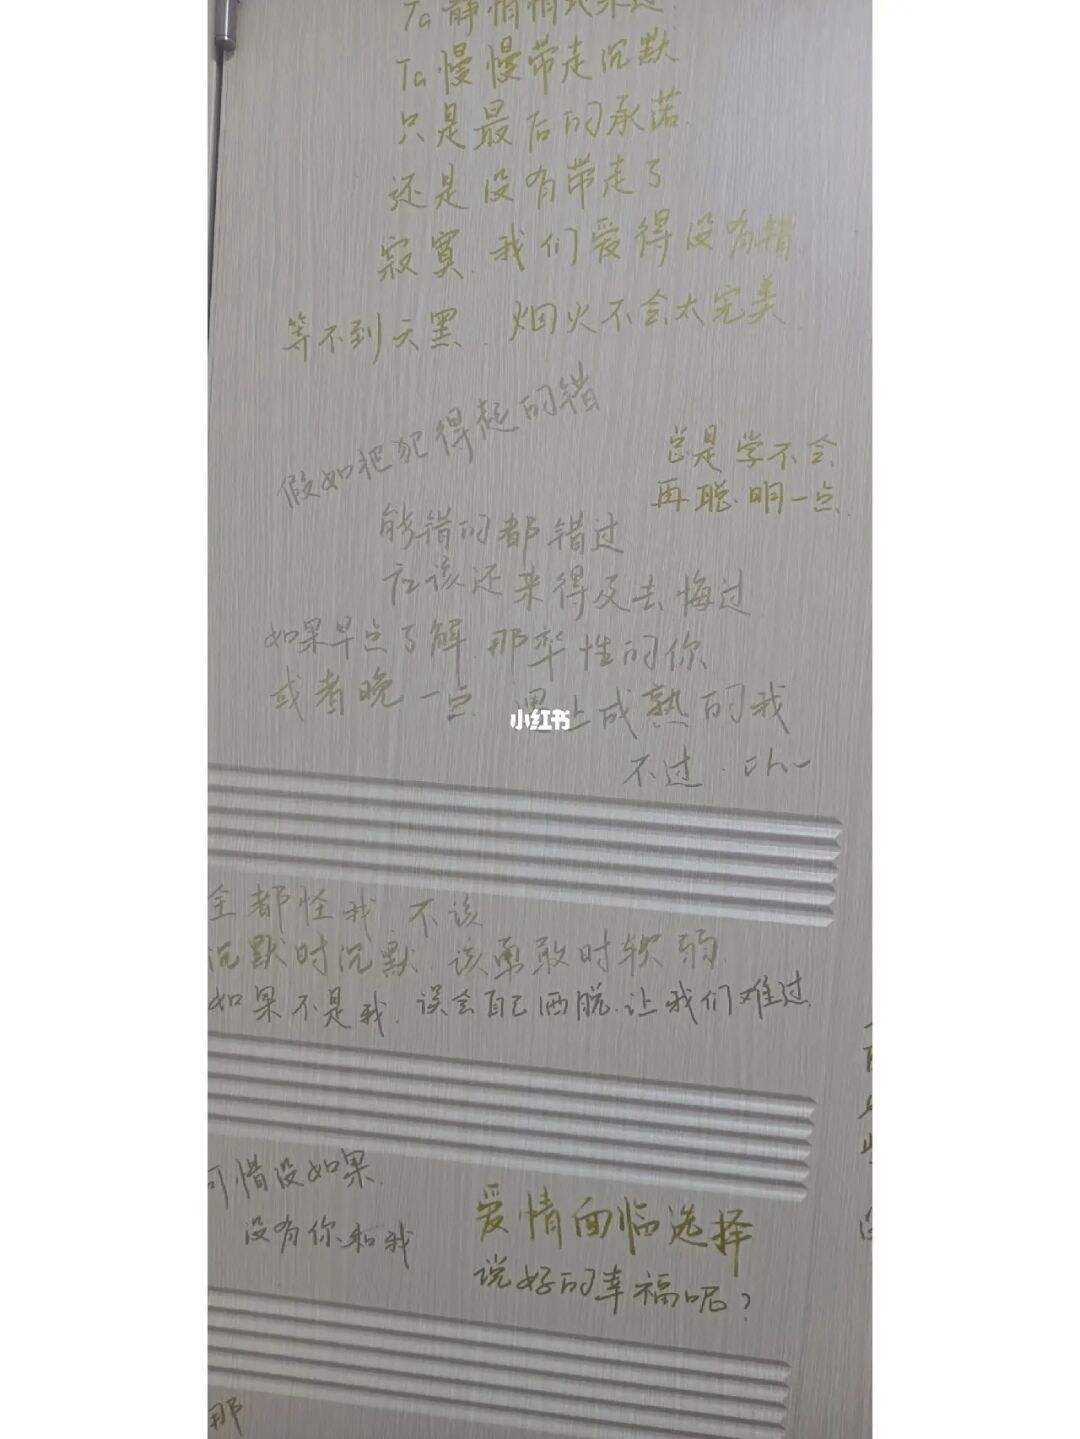 Ta静悄悄地来过
Ta慢慢带走沉默
只是最后的承诺
还是没有带走了
寂寞 我们爱得没有错
等不到天黑 烟火不会太完美
假如把犯得起的错
总是学不会
再聪明一点
能错的都错过
应该还来得及去悔过
如果早点了解 那率性的你
或者晚一点 遇上成熟的我
小红书
不过 oh~
全都怪我 不该
沉默时沉默 该勇敢时软弱
如果不是我 误会自己洒脱 让我们难过
可惜没如果
没有你和我
爱情面临选择
说好的幸福呢?
那